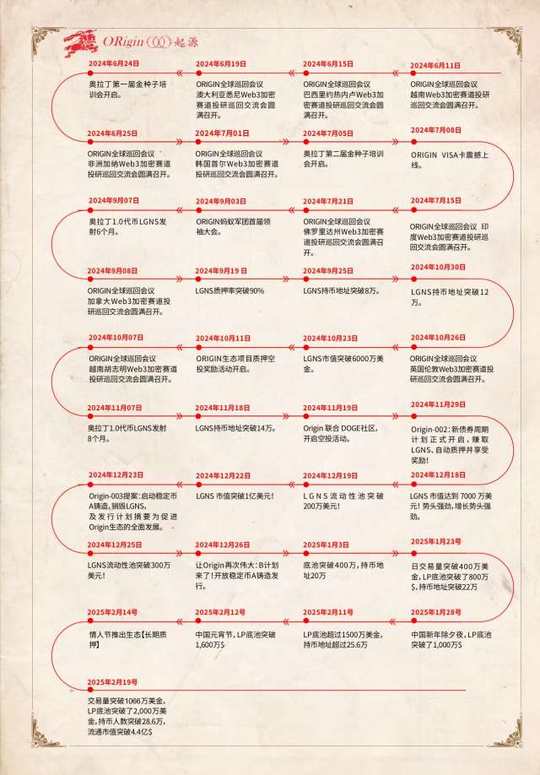 ORigin 起源
2024年6月11日
ORIGIN全球巡回会议
越南Web3加密赛道投研
巡回交流会圆满召开。
2024年6月15日
ORIGIN全球巡回会议
巴西里约热内卢Web3加
密赛道投研巡回交流会圆
满召开。
2024年6月19日
ORIGIN全球巡回会议
澳大利亚悉尼Web3加密
赛道投研巡回交流会圆
满召开。
2024年6月24日
奥拉丁第一届金种子培
训会开启。
2024年6月25日
ORIGIN全球巡回会议
非洲加纳Web3加密赛道
投研巡回交流会圆满召开。
2024年7月01日
ORIGIN全球巡回会议
韩国首尔Web3加密赛道
投研巡回交流会圆满召开。
2024年7月05日
奥拉丁第二届金种子培训
会开启。
2024年7月08日
ORIGIN VISA卡震撼上
线。
2024年7月15日
ORIGIN全球巡回会议 印
度Web3加密赛道投研巡
回交流会圆满召开。
2024年7月21日
ORIGIN全球巡回会议
佛罗里达州Web3加密赛
道投研巡回交流会圆满召
开。
2024年9月03日
ORIGIN蚂蚁军团首届领
袖大会。
2024年9月07日
奥拉丁1.0代币LGNS发
射6个月。
2024年9月08日
ORIGIN全球巡回会议
加拿大Web3加密赛道投
研巡回交流会圆满召开。
2024年9月19日
LGNS质押率突破90%
2024年9月25日
LGNS持币地址突破8万。
2024年10月30日
LGNS持币地址突破12
万。
2024年10月26日
ORIGIN全球巡回会议
英国伦敦Web3加密赛道投
研巡回交流会圆满召开。
2024年10月23日
LGNS市值突破6000万美
金。
2024年10月11日
ORIGIN生态项目质押空
投奖励活动开启。
2024年10月07日
ORIGIN全球巡回会议
越南胡志明Web3加密赛道
投研巡回交流会圆满召开。
2024年11月07日
奥拉丁1.0代币LGNS发射
8个月。
2024年11月18日
LGNS持币地址突破14万。
2024年11月19日
Origin 联合 DOGE社区，
开启空投活动。
2024年11月29日
Origin-002：新债券周期
计划正式开启，赚取
LGNS、自动质押并享受
奖励！
2024年12月18日
LGNS 市值达到 7000 万美
元！势头强劲，增长势头强
劲。
2024年12月19日
LGNS流动性池突破
200万美元！
2024年12月22日
LGNS 市值突破1亿美元！
2024年12月23日
Origin-003提案：启动稳定币
A铸造，销毁LGNS，
及发行计划摘要为促进
Origin生态的全面发展。
2024年12月25日
LGNS流动性池突破300万
美元！
2024年12月26日
让Origin再次伟大：B计划
来了！开放稳定币A铸造发
行。
2025年1月3日
底池突破400万，持币地
址20万
2025年1月23号
日交易量突破400万美
金，LP底池突破了800万
$，持币地址突破22万
2025年1月28号
中国新年除夕夜，LP底池
突破了1,000万$
2025年2月11号
LP底池超过1500万美金，
持币地址超过25.6万
2025年2月12号
中国元宵节，LP底池突破
1,600万$
2025年2月14号
情人节推出生态【长期质
押】
2025年2月19号
交易量突破1066万美金，
LP底池突破了2,000万美
金，持币人数突破28.6万，
流通市值突破4.4亿$